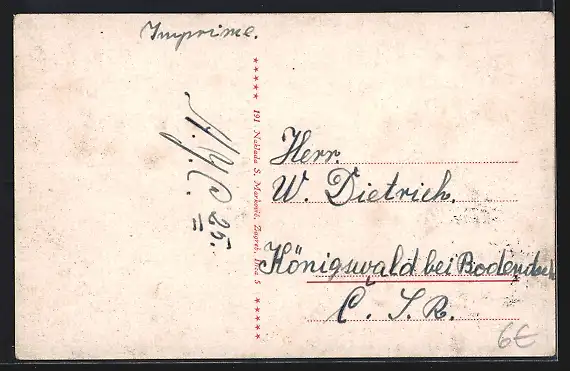 Imprime.
25.
II
191 Naklada S. Marković, Zagreb, Ilica 5
Herr.
W. Dietrich.
Königswald bei Bodenbach
Č. S. R.
6€